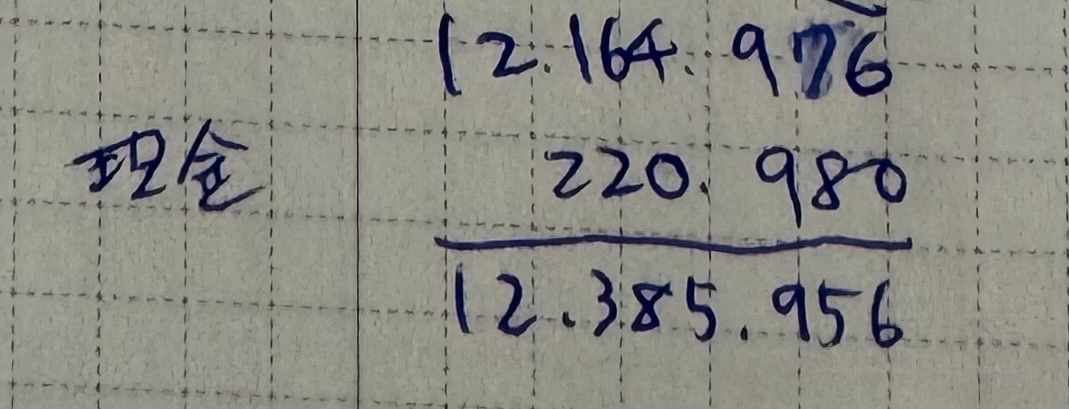 12.164.976
現金 220.980
12.385.956